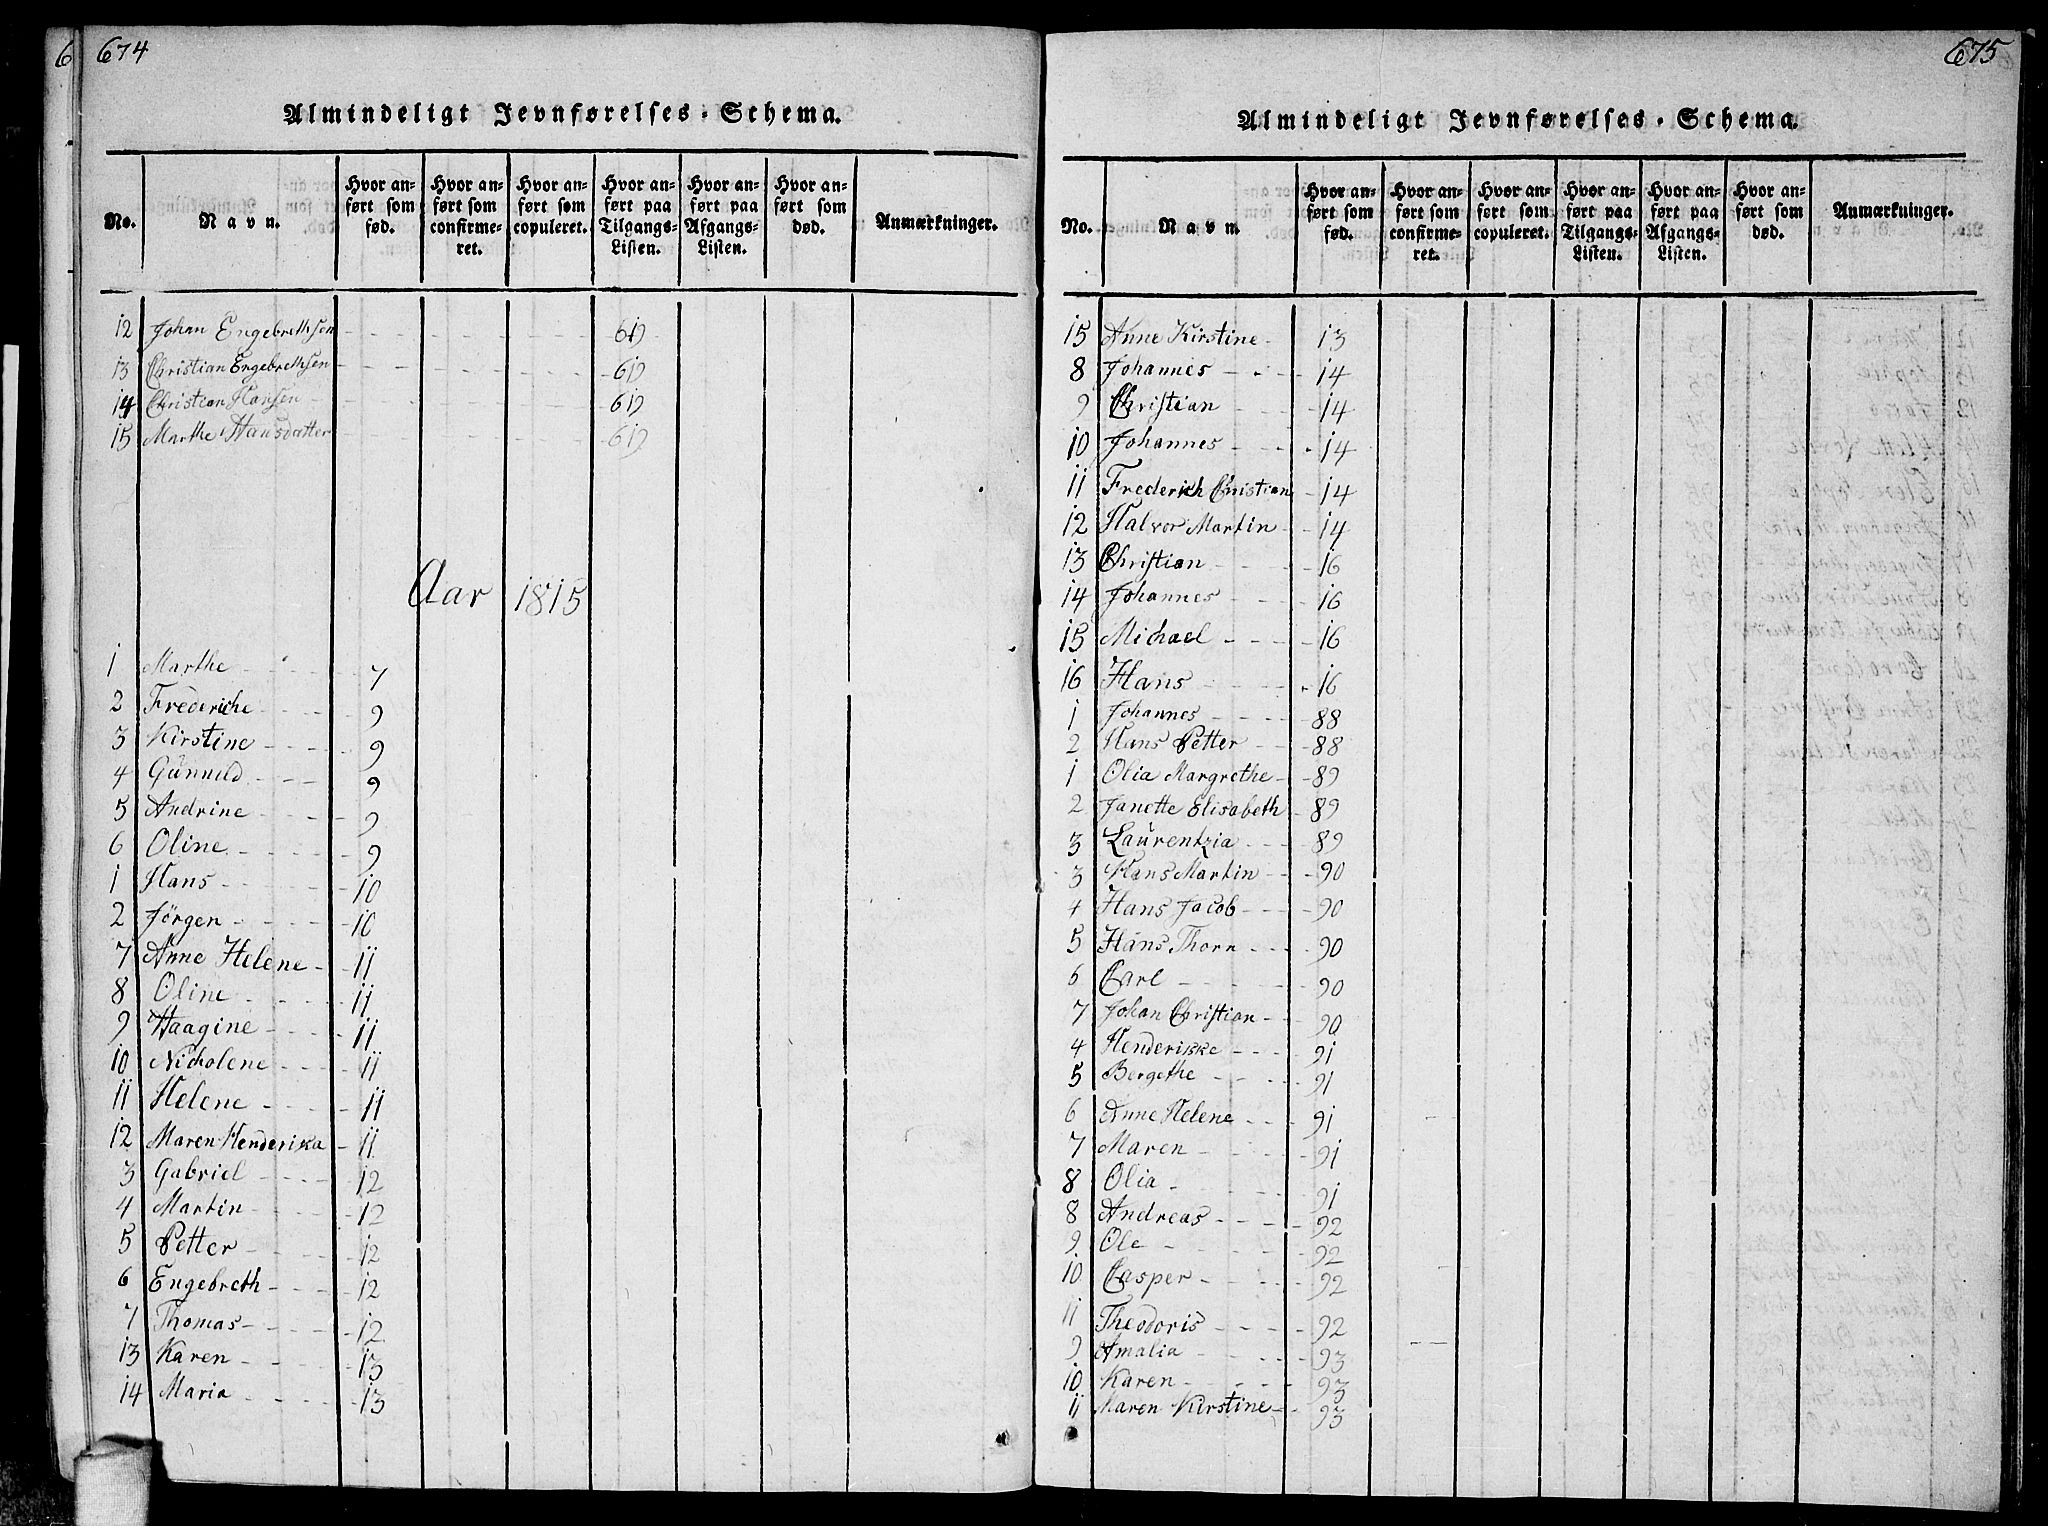 6 674
Almindeligt Jevnførelses-Schema.
No. Navn. Hvor anført som fød. Hvor anført som confirmeret. Hvor anført som copuleret. Hvor anført paa Tilgangs-Listen. Hvor anført paa Afgangs-Listen. Hvor anført som død. Anmærkninger.
12 Johan Engebrethsen 619
13 Christian Engebrethsen 619
14 Christian Hansen 619
15 Marthe Hansdatter 619
Aar 1815
1 Marthe 7
2 Frederiche 9
3 Kirstine 9
4 Gunnild 9
5 Andrine 9
6 Oline 9
1 Hans 10
2 Jörgen 10
7 Anne Helene 11
8 Oline 11
9 Haagine 11
10 Nicholene 11
11 Helene 11
12 Maren Henderika 11
3 Gabriel 12
4 Martin 12
5 Petter 12
6 Engebreth 12
7 Thomas 12
13 Karen 13
14 Maria 13
675
Almindeligt Jevnførelses-Schema.
No. Navn. Hvor anført som fød. Hvor anført som confirmeret. Hvor anført som copuleret. Hvor anført paa Tilgangs-Listen. Hvor anført paa Afgangs-Listen. Hvor anført som død. Anmærkninger.
15 Anne Kirstine 13
8 Johannes 14
9 Christian 14
10 Johannes 14
11 Frederich Christian 14
12 Halvor Martin 14
13 Christian 16
14 Johannes 16
15 Michael 16
16 Hans 16
1 Johannes 88
2 Hans Petter 88
1 Olia Margrethe 89
2 Janette Elisabeth 89
3 Laurentzia 89
3 Hans Martin 90
4 Hans Jacob 90
5 Hans Thorn 90
6 Carl 90
7 Johan Christian 90
4 Henderikke 91
5 Bergethe 91
6 Anne Helene 91
7 Maren 91
8 Olia 91
8 Andreas 92
9 Ole 92
10 Casper 92
11 Theodoris 92
9 Amalia 93
10 Karen 93
11 Maren Kirstine 93